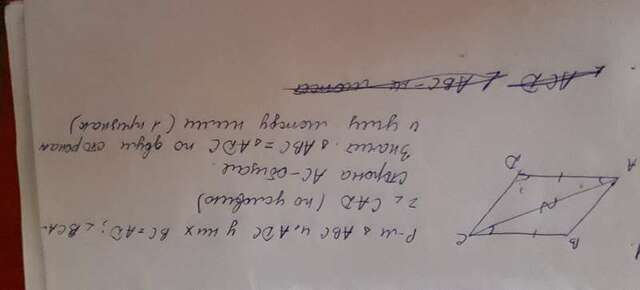 Р-м △ ABC и △ ADC у них BC=AD; ∠BCA=
=∠CAD (по условию)
сторона AC-общая.
Значит △ABC=△ADC по двум сторонам
и углу между ними (1 признак)
∠ ACD ∠ ABC-
A
B
C
D